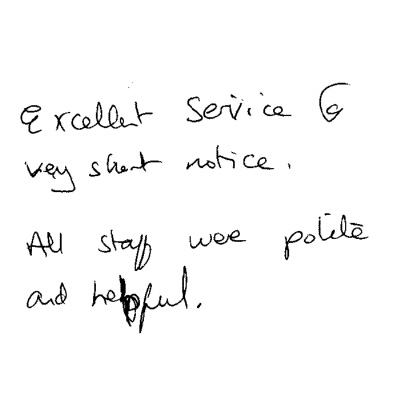 Excellent Service @
very short notice.
All staff were polite
and helpful.